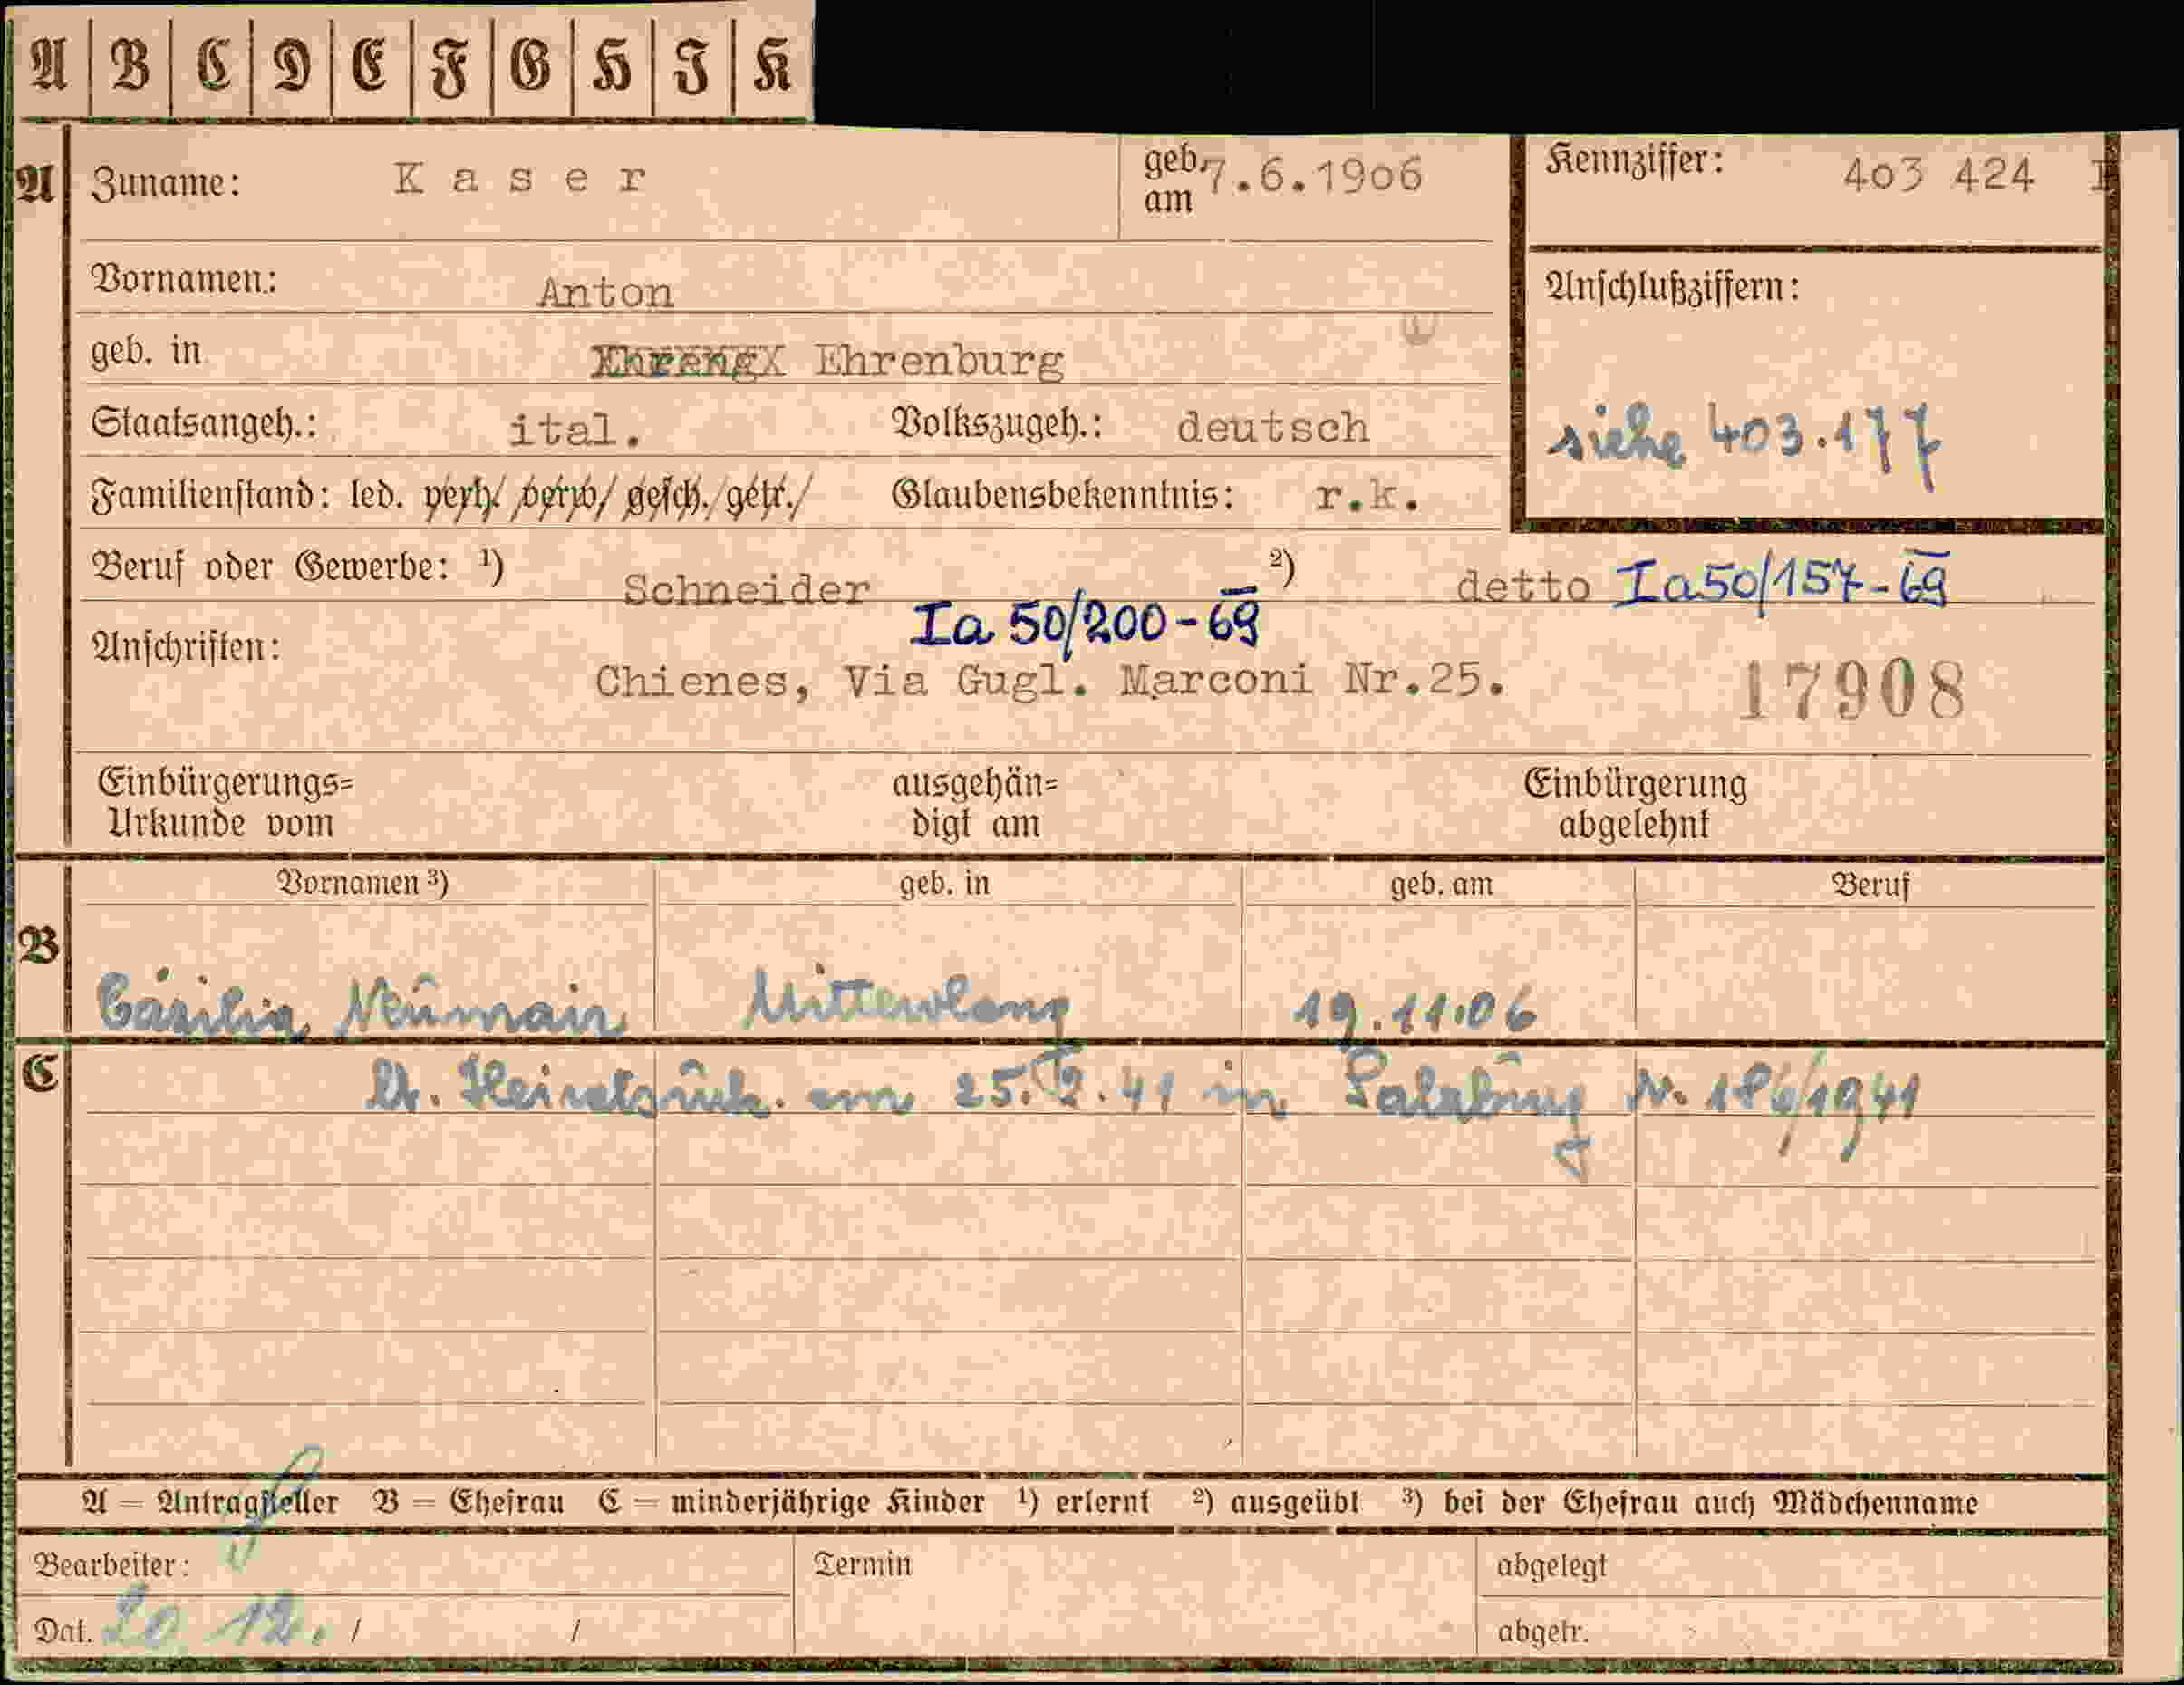 A B C D E F G H I K
A Zuname: Kaser geb. am 7.6.1906 Kennziffer: 403 424 I
Vornamen: Anton Anschlußziffern:
geb. in Ehrenburg
siehe 403.177
Staatsangeh.: ital. Volkszugeh.: deutsch
Familienstand: led. verh. verw. gesch. getr. Glaubensbekenntnis: r.k.
Beruf oder Gewerbe: ¹) Schneider ²) detto Ia50/157-69
Ia 50/200-69
Anschriften: Chienes, Via Gugl. Marconi Nr.25. 17908
Einbürgerungs= ausgehän= Einbürgerung
Urkunde vom digt am abgelehnt
Vornamen ³) geb. in geb. am Beruf
B Cäzilia Neumair 19.11.06
C lt. Heiratsurk. am 25. 2. 41 in Salzburg N. 186/1941
A = Antragsteller B = Ehefrau C = minderjährige Kinder ¹) erlernt ²) ausgeübt ³) bei der Ehefrau auch Mädchenname
Bearbeiter: Termin abgelegt
Dat. 20 12. / / abgetr.